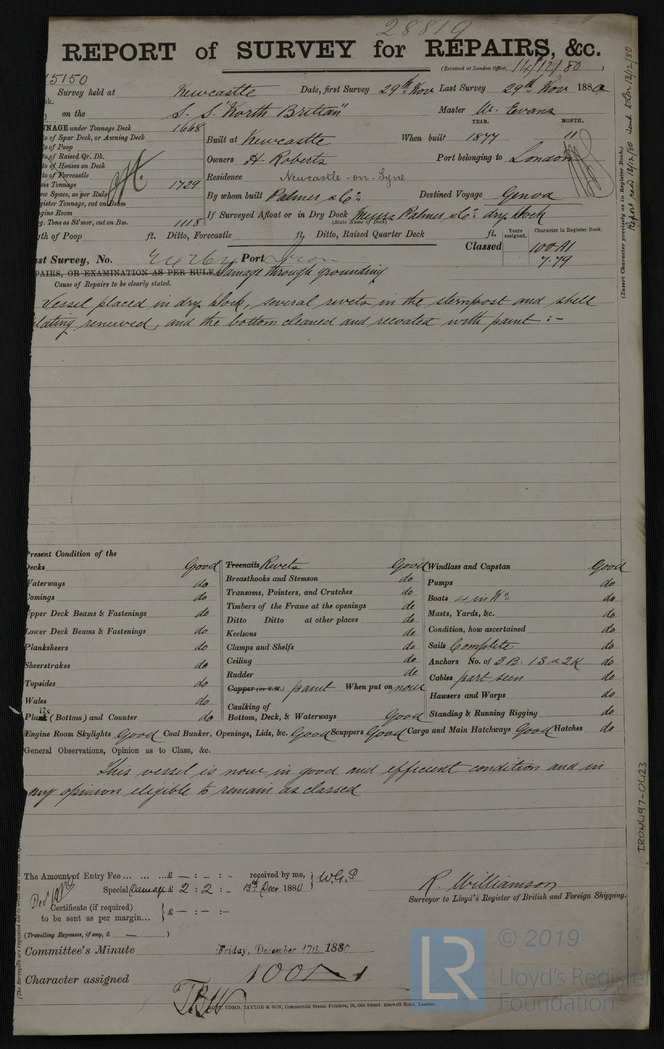 28819
REPORT of SURVEY for REPAIRS, &c.
(Received at London Office, 14/12/80
15150
Survey held at Newcastle Date, first Survey 29th Nov Last Survey 29th Nov 1880
on the S. S. "North Britain" Master W. Evans
YEAR. MONTH.
TONNAGE under Tonnage Deck 1668
Built at Newcastle When built 1877 11
Owners H. Roberts Port belonging to London
Residence Newcastle-on-Tyne
1729
By whom built Palmer & Co. Destined Voyage Genoa
1118
If Surveyed Afloat or in Dry Dock Messrs Palmer & Co. dry dock
(State Name of Dock.)
Length of Poop ft. Ditto, Forecastle ft. Ditto, Raised Quarter Deck ft.
Years assigned. Character in Register Book.
Classed 100 A1
7.79
Last Survey, No. Port
REPAIRS, OR EXAMINATION AS PER RULE Damage through grounding
Cause of Repairs to be clearly stated.
Vessel placed in dry dock, several rivets in the sternpost and shell
plating renewed, and the bottom cleaned and recoated with paint :-
Present Condition of the
Decks Good
Waterways do
Comings do
Upper Deck Beams & Fastenings do
Lower Deck Beams & Fastenings do
Planksheers do
Sheerstrakes do
Topsides do
Wales do
Plank (Bottom) and Counter do
Treenails Rivets Good
Breasthooks and Stemson do
Transoms, Pointers, and Crutches do
Timbers of the Frame at the openings do
Ditto Ditto at other places do
Keelsons do
Clamps and Shelfs do
Ceiling do
Rudder do
Copper (or Y.M.) paint When put on now
Caulking of
Bottom, Deck, & Waterways Good
Windlass and Capstan Good
Pumps do
Boats 4 in No. do
Masts, Yards, &c. do
Condition, how ascertained do
Sails Complete do
Anchors No. of 3 B. 1 S & 2 K do
Cables part seen do
Hawsers and Warps do
Standing & Running Rigging do
Engine Room Skylights Good Coal Bunker, Openings, Lids, &c. Good Scuppers Good Cargo and Main Hatchways Good Hatches do
General Observations, Opinion as to Class, &c.
This vessel is now in good and efficient condition and in
my opinion eligible to remain as classed
The Amount of Entry Fee ... ... ...£ - : - : - received by me,
Special Damage £ 2 : 2 : - 13th Dec 1880
Certificate (if required)
to be sent as per margin... £ - : - : -
(Travelling Expenses, if any, £ - )
R. Williamson
Surveyor to Lloyd's Register of British and Foreign Shipping.
Committee's Minute Friday, December 17th, 1880
Character assigned 100 A1
EDMD. TAYLOR & SON, Commercial Steam Printers, 38, Old Street, Goswell Road, London.
(Insert Character precisely as in Register Book.)
IRON497-0423
LR
© 2019
Lloyd's Register
Foundation